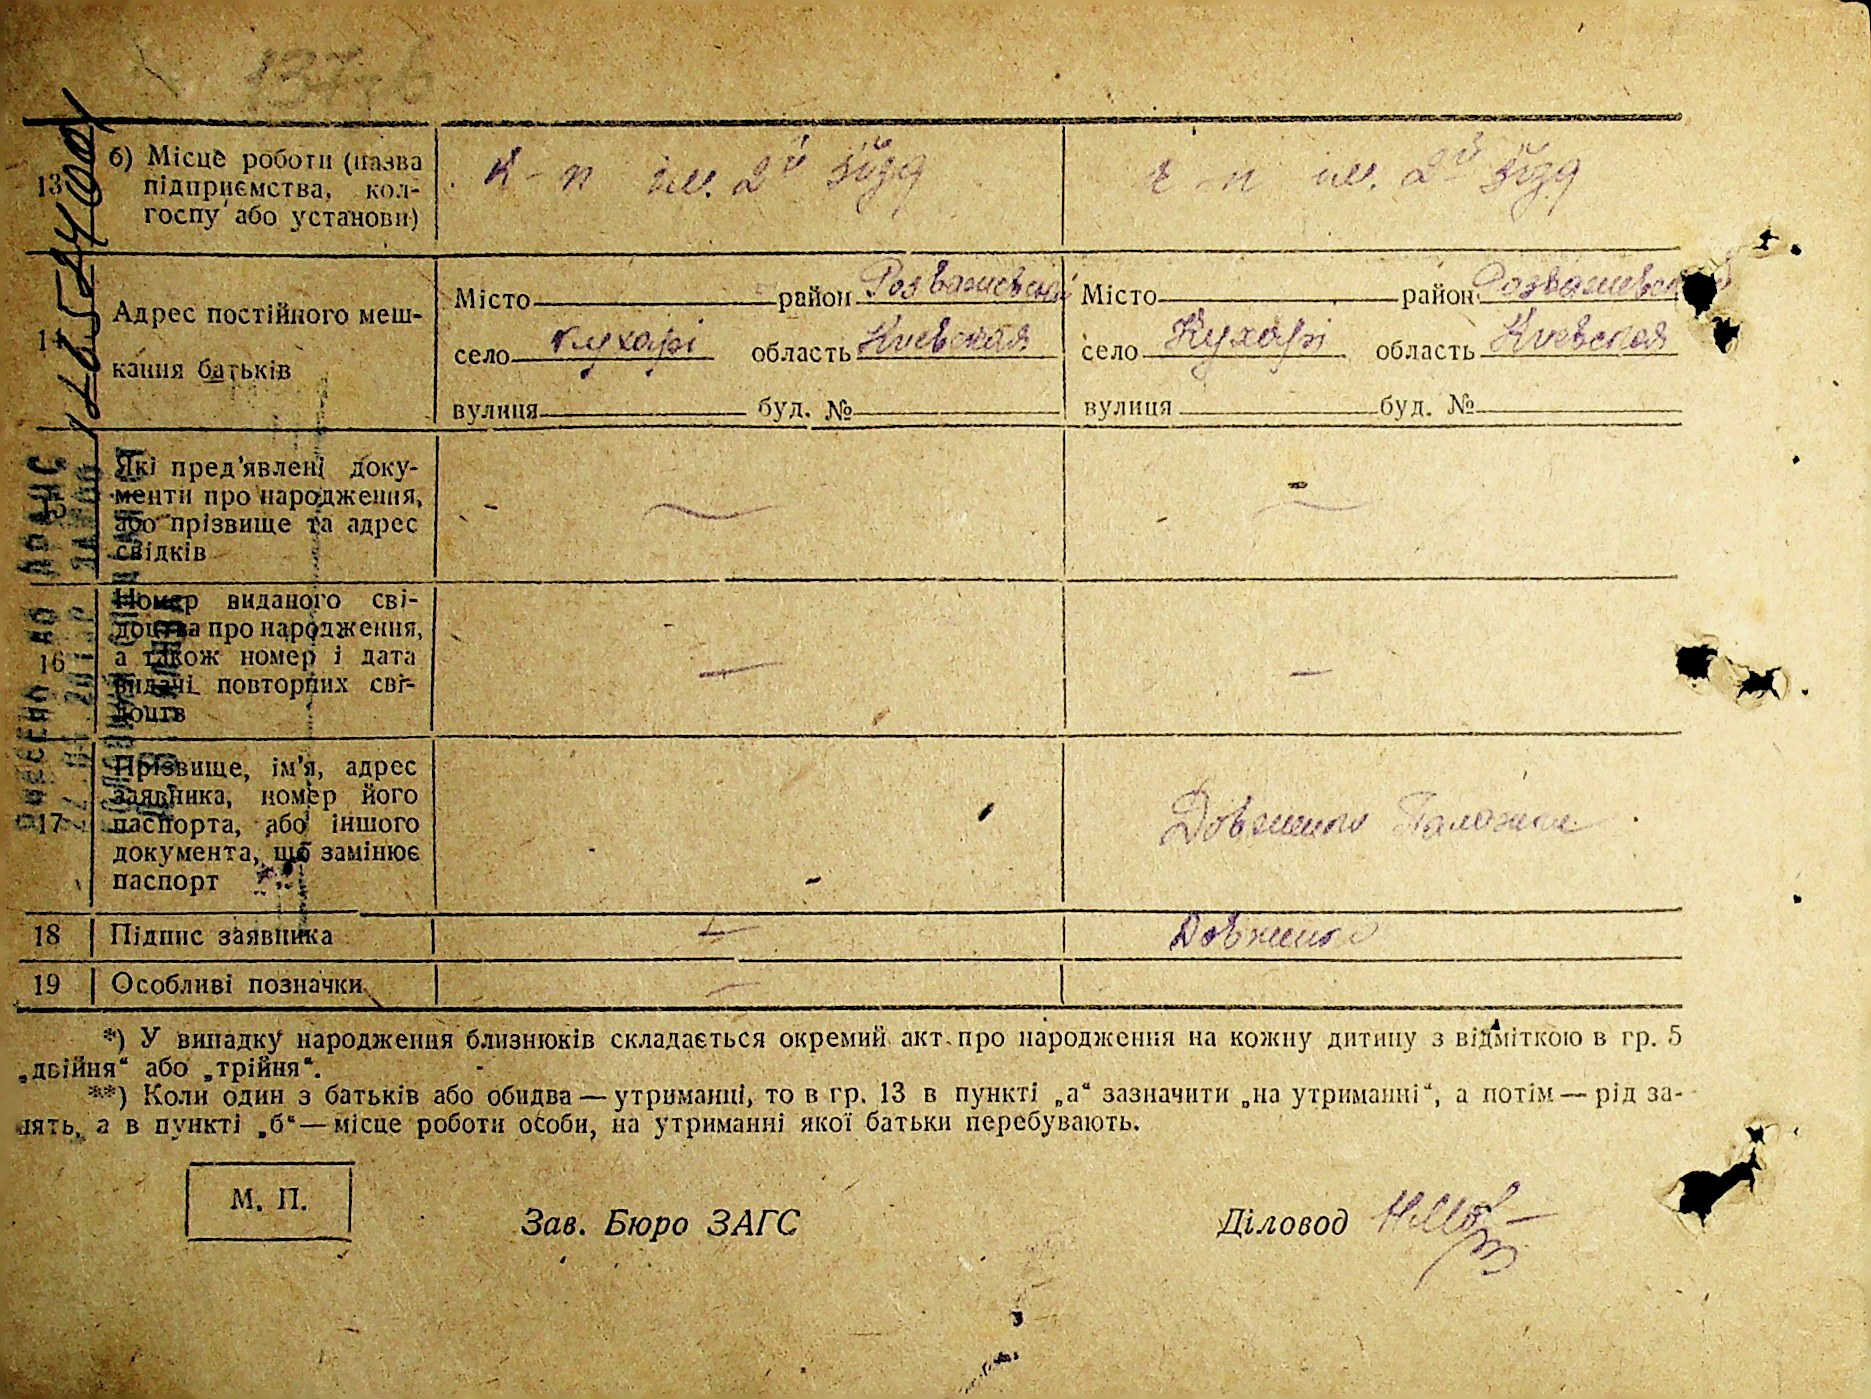 137-б
13 б) Місце роботи (назва
підприємства, кол-
госпу або установи)
к-п ім. 2й к-п ім. 2й
14 Адрес постійного меш-
кання батьків
Місто район Розважевский Місто район Розважевский
село Кухарі область Киевская село Кухарі область Киевская
вулиця буд. № вулиця буд. №
15 Які пред'явлені доку-
менти про народження,
або прізвище та адрес
свідків
16 Номер виданого сві-
доцтва про народження,
а також номер і дата
видачі повторних сві-
доцтв
17 Прізвище, ім'я, адрес
заявника, номер його
паспорта, або іншого
документа, що замінює
паспорт
Довженко
18 Підпис заявника — Довженко
19 Особливі позначки —
*) У випадку народження близнюків складається окремий акт про народження на кожну дитину з відміткою в гр. 5
„двійня“ або „трійня“.
**) Коли один з батьків або обидва — утриманці, то в гр. 13 в пункті „а“ зазначити „на утриманні“, а потім — рід за-
нять, а в пункті „б“ — місце роботи особи, на утриманні якої батьки перебувають.
М. П.
Зав. Бюро ЗАГС Діловод